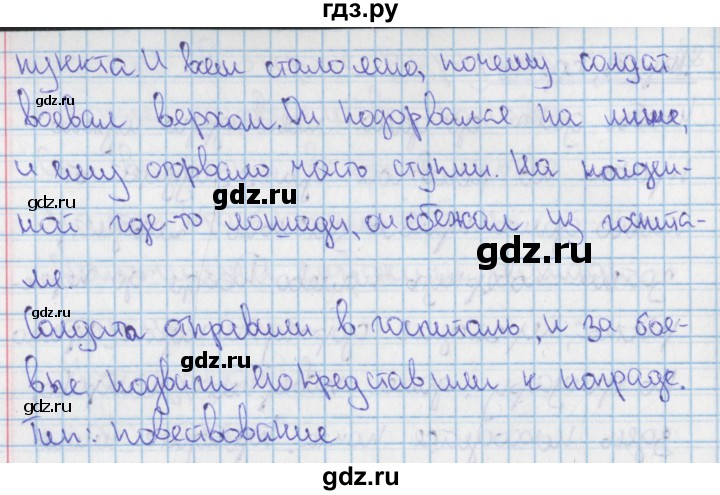 гдз.ру
пункта. И всем стало ясно, почему солдат
gdz.ru
gdz.ru
воевал верхом. Он подорвался на мине,
и ему оторвало часть ступни. На найден-
gdz.ru
ной где-то лошади, он сбежал из госпита-
gdz.ru
ля.
Солдата отправили в госпиталь, и за бое-
gdz.ru
gdz.ru
вые подвиги его представили к награде.
Тип: повествование
gdz.ru
gdz.ru